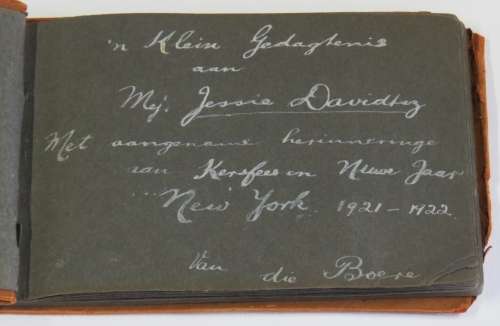 'n Klein Gedagtenis
aan
Mej. Jessie Davidtsz
Met aangename herinneringe
van Kersfees en Nuwe Jaar
New York 1921-1922
Van die Boere